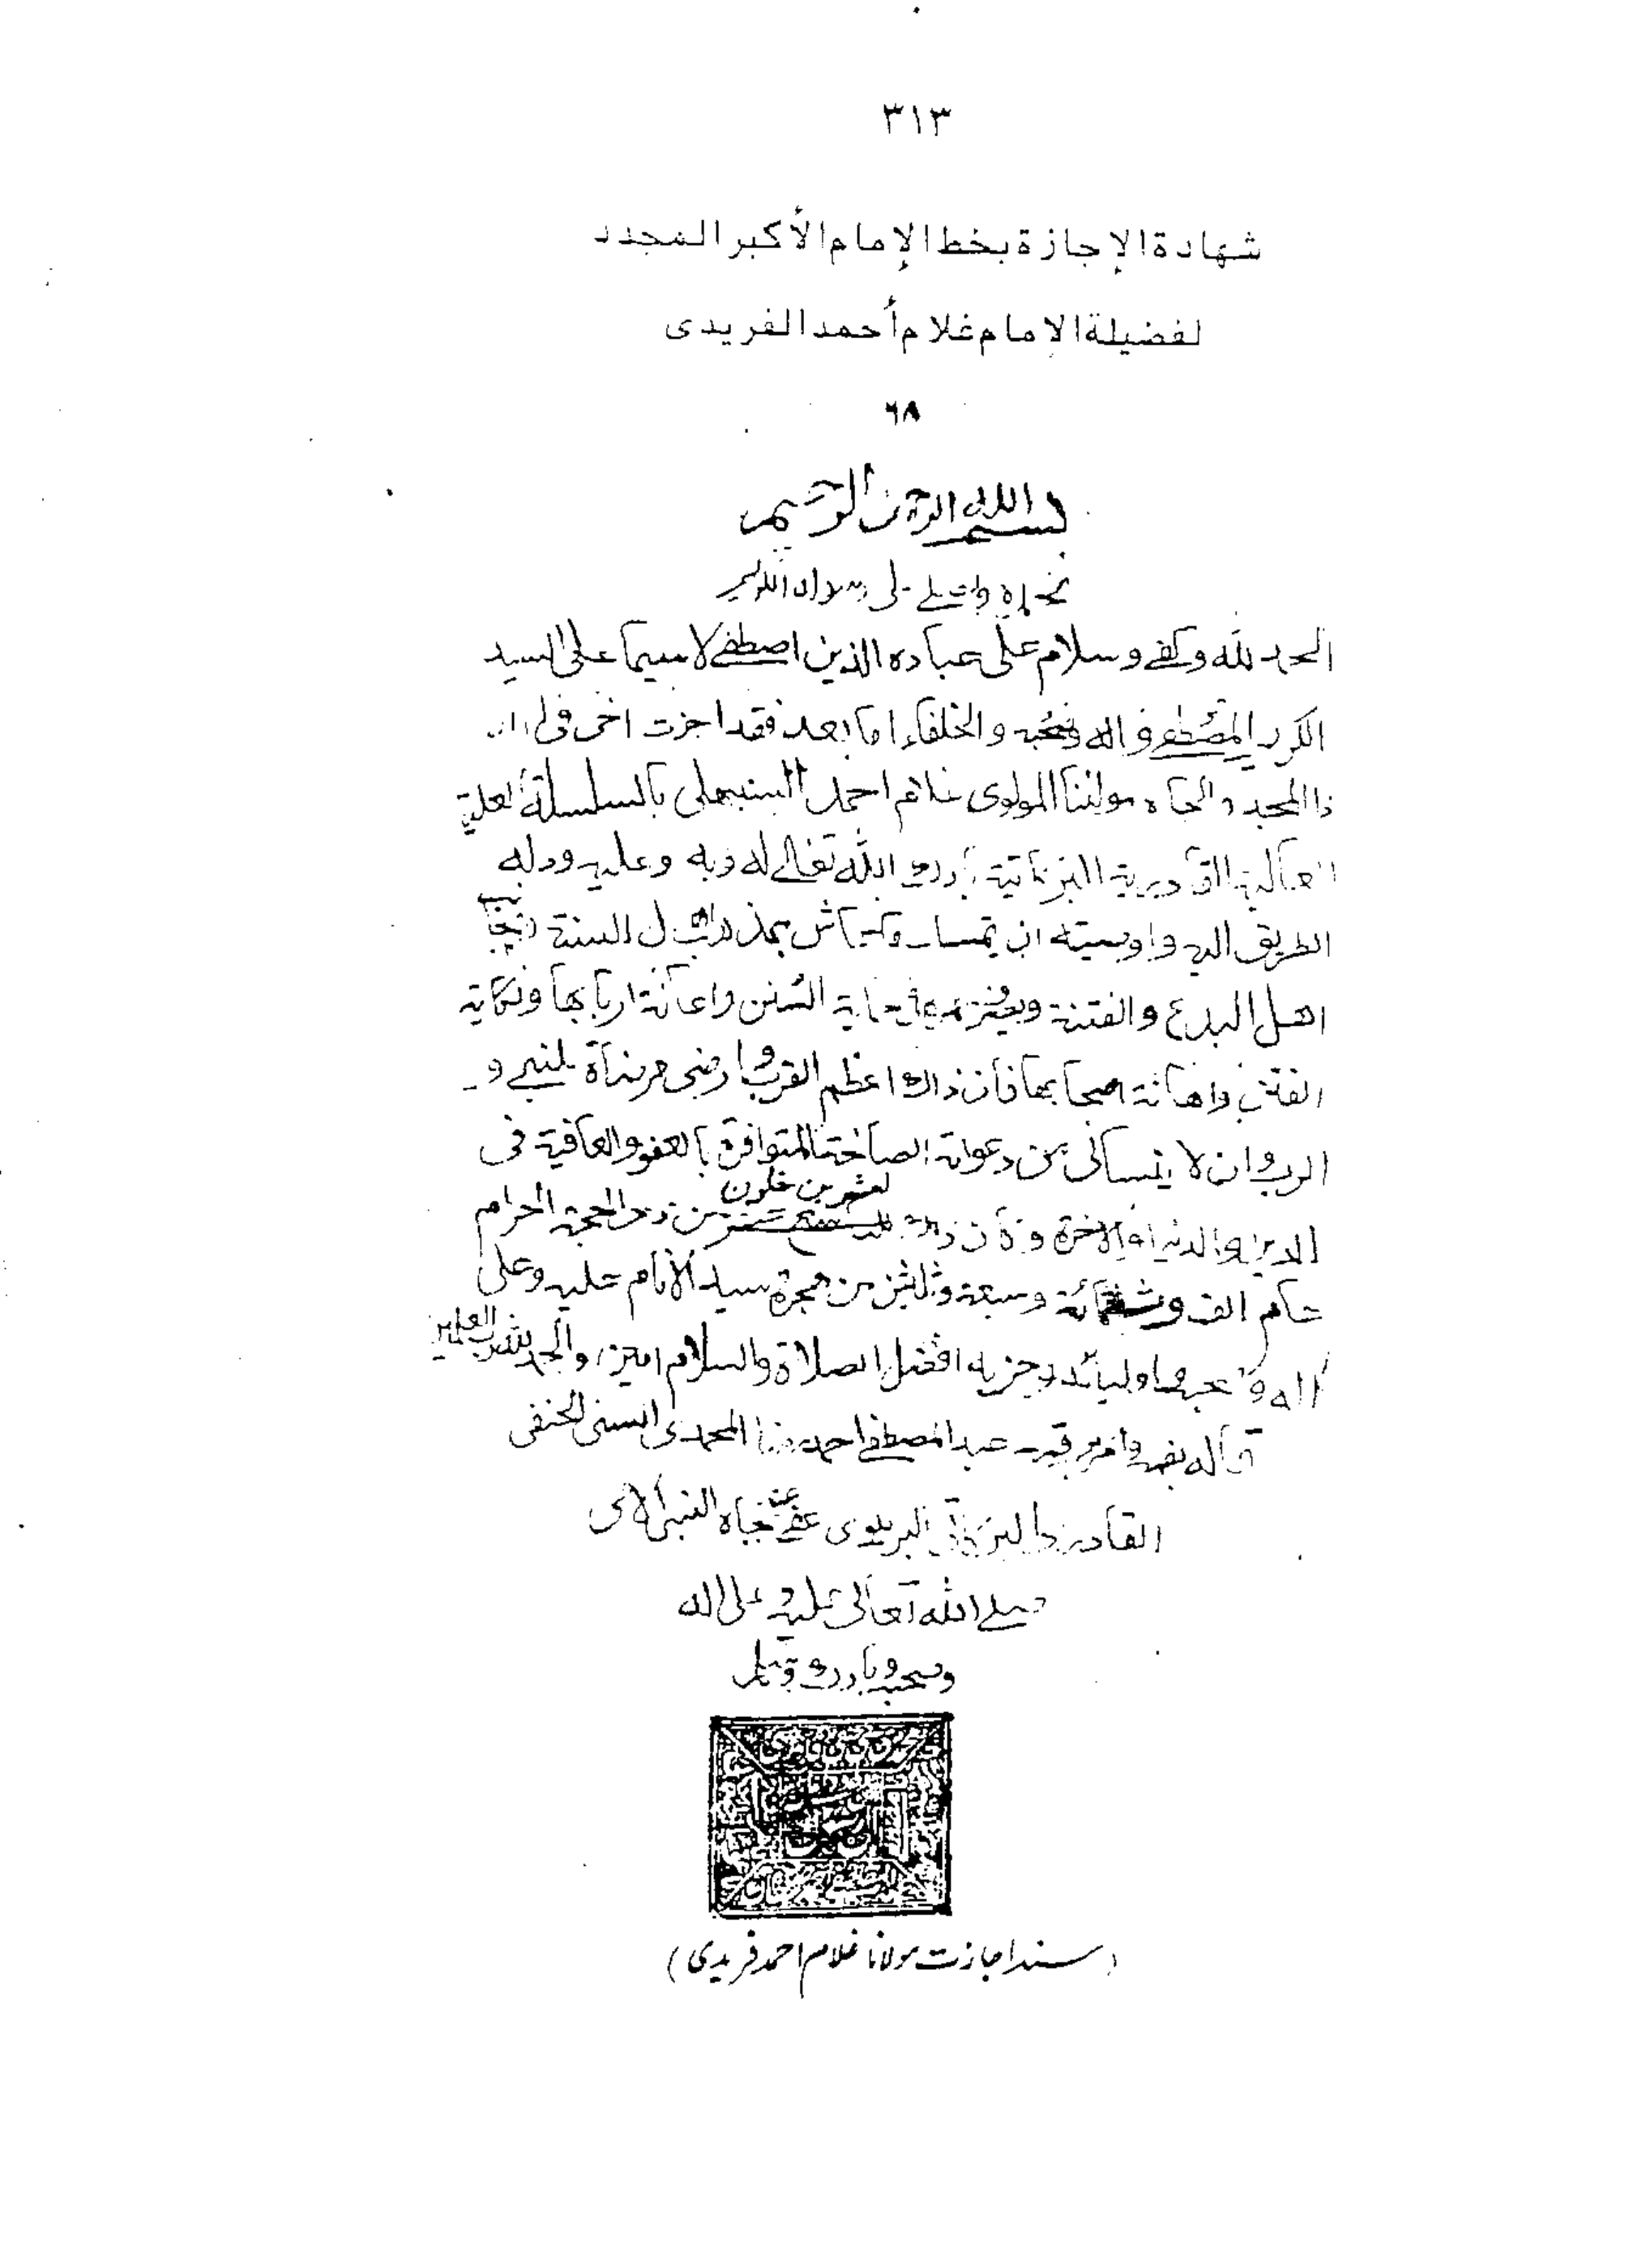 ٣١٣
شهادة الإجازة بخط الإمام الأكبر المجدد
لفضيلة الإمام غلام أحمد الفريدى
٦٨
بسم الله الرحمن الرحيم
نحمده ونصلے على رسوله الكريم
الحمد لله وكفے وسلام على عباده الذين اصطفے لا سيما على السيد
الكريم المصطفے واله وصحبه والخلفاء اما بعد فقد اجزت اخى فى الله
ذا المجد والجاه مولنا المولوى غلام احمد السنبهلى بالسلسلة العلية
العالية القادرية البركاتية بارك الله تعالے له وبه وعليه
الطريق اليه واوصيته ان يتمسك السنة
اهل البدع والفتنة حماية السنن واعانة اربابها ونكاية
الفتن واهانة اصحابها فان ذلك اعظم القرب وارضى مرضاة للنبے و
الرب وان لا ينسانى من دعواته الصالحة المتوافرة بالعفو والعافية فى
الدين والدنيا والاخرة وكان ذلك لعشر بن خلون من ذى الحجة الحرام
عام الف وثلثمائة وسبعة وثلثين من هجرة سيد الانام عليه وعلى
اله وصحبه واوليائه وحزبه افضل الصلاة والسلام امين والحمد لله رب العلمين
قاله بفمه وامر برقمه عبد المصطفے احمد رضا المحمدى السنى الحنفى
القادرى البركاتى البريلوى عفے عنه بجاه النبى الامى
صلے الله تعالى عليه وعلى اله
وصحبه وبارك وسلم
(سند اجازت مولانا غلام احمد فریدی)